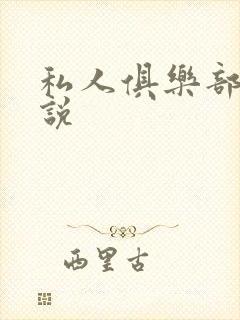 私人俱樂部
說
西里古